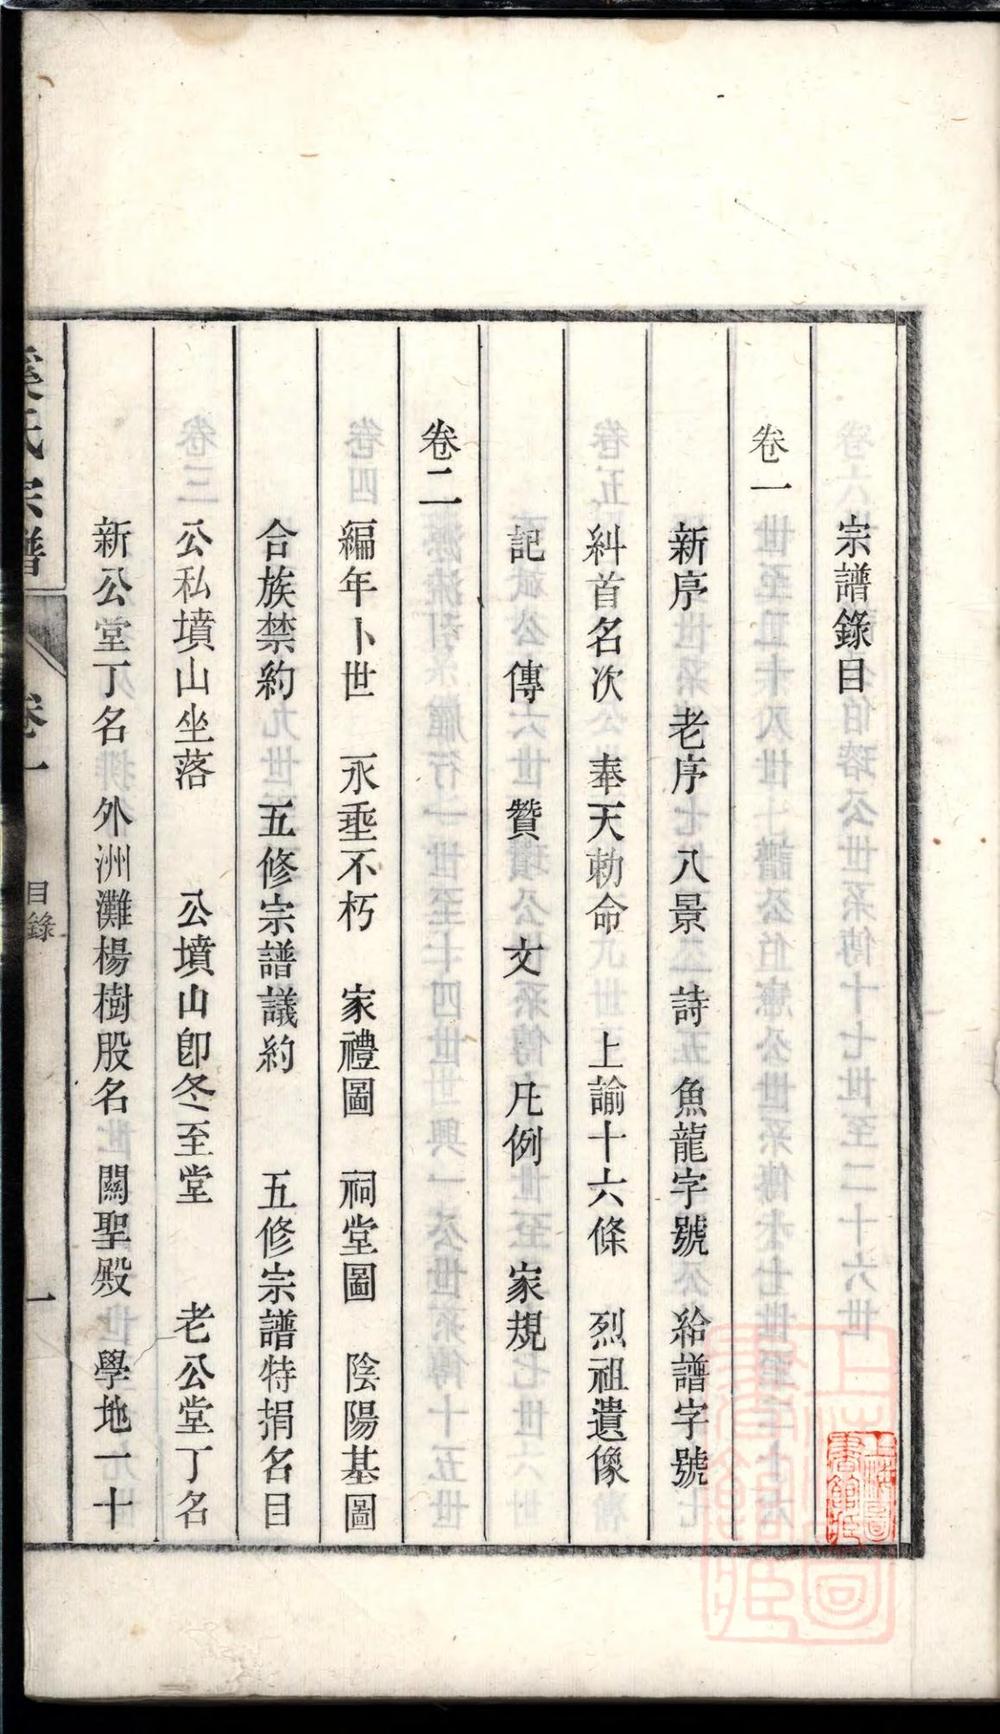 宗譜錄目
卷一
新序 老序 八景 詩 魚龍字號 給譜字號
糾首名次 奉天勅命 上諭十六條 烈祖遺像
記 傳 贊 文 凡例 家規
卷二
編年卜世 永垂不朽 家禮圖 祠堂圖 陰陽基圖
合族禁約 五修宗譜議約 五修宗譜特捐名目
公私墳山坐落 公墳山卽冬至堂 老公堂丁名
新公堂丁名 外洲灘楊樹股名 關聖殿 學地一十
氏宗譜 卷一 目錄 一
上海圖書館藏